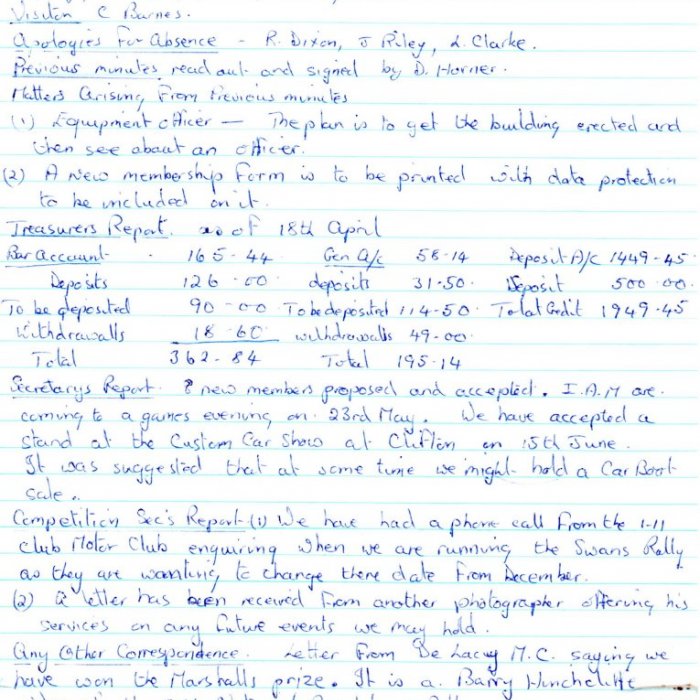 Visitor C Barnes.
Apologies For Absence - R. Dixon, J Riley, L. Clarke.
Previous minutes read out and signed by D. Horner.
Matters Arising From Previous minutes
(1) Equipment officer — The plan is to get the building erected and
then see about an officer.
(2) A new membership Form is to be printed with data protection
to be included on it.
Treasurers Report. as of 18th April
Bar Account . 165-44 Gen A/c 58-14 Deposit A/C 1449-45
Deposits 126-00 deposits 31-50. Deposit 500 00.
To be deposited 90-00 To be deposited 114-50. Total Credit 1949-45
Withdrawalls 18-60 withdrawalls 49-00.
Total 362-84 Total 195-14
Secretarys Report. 8 new members proposed and accepted. I.A.M are
coming to a games evening on 23rd May. We have accepted a
stand at the Custom Car Show at Clifton on 15th June.
It was suggested that at some time we might hold a Car Boot
sale..
Competition Sec's Report-(1) We have had a phone call From the 1-11
club Motor Club enquiring when we are running the Swans Rally
as they are wanting to change there date From December.
(2) A letter has been received From another photographer offering his
services on any future events we may hold.
Any Other Correspondence. Letter From De Lacy M.C. saying we
have won the Marshalls prize. It is a Barry Hinchcliffe